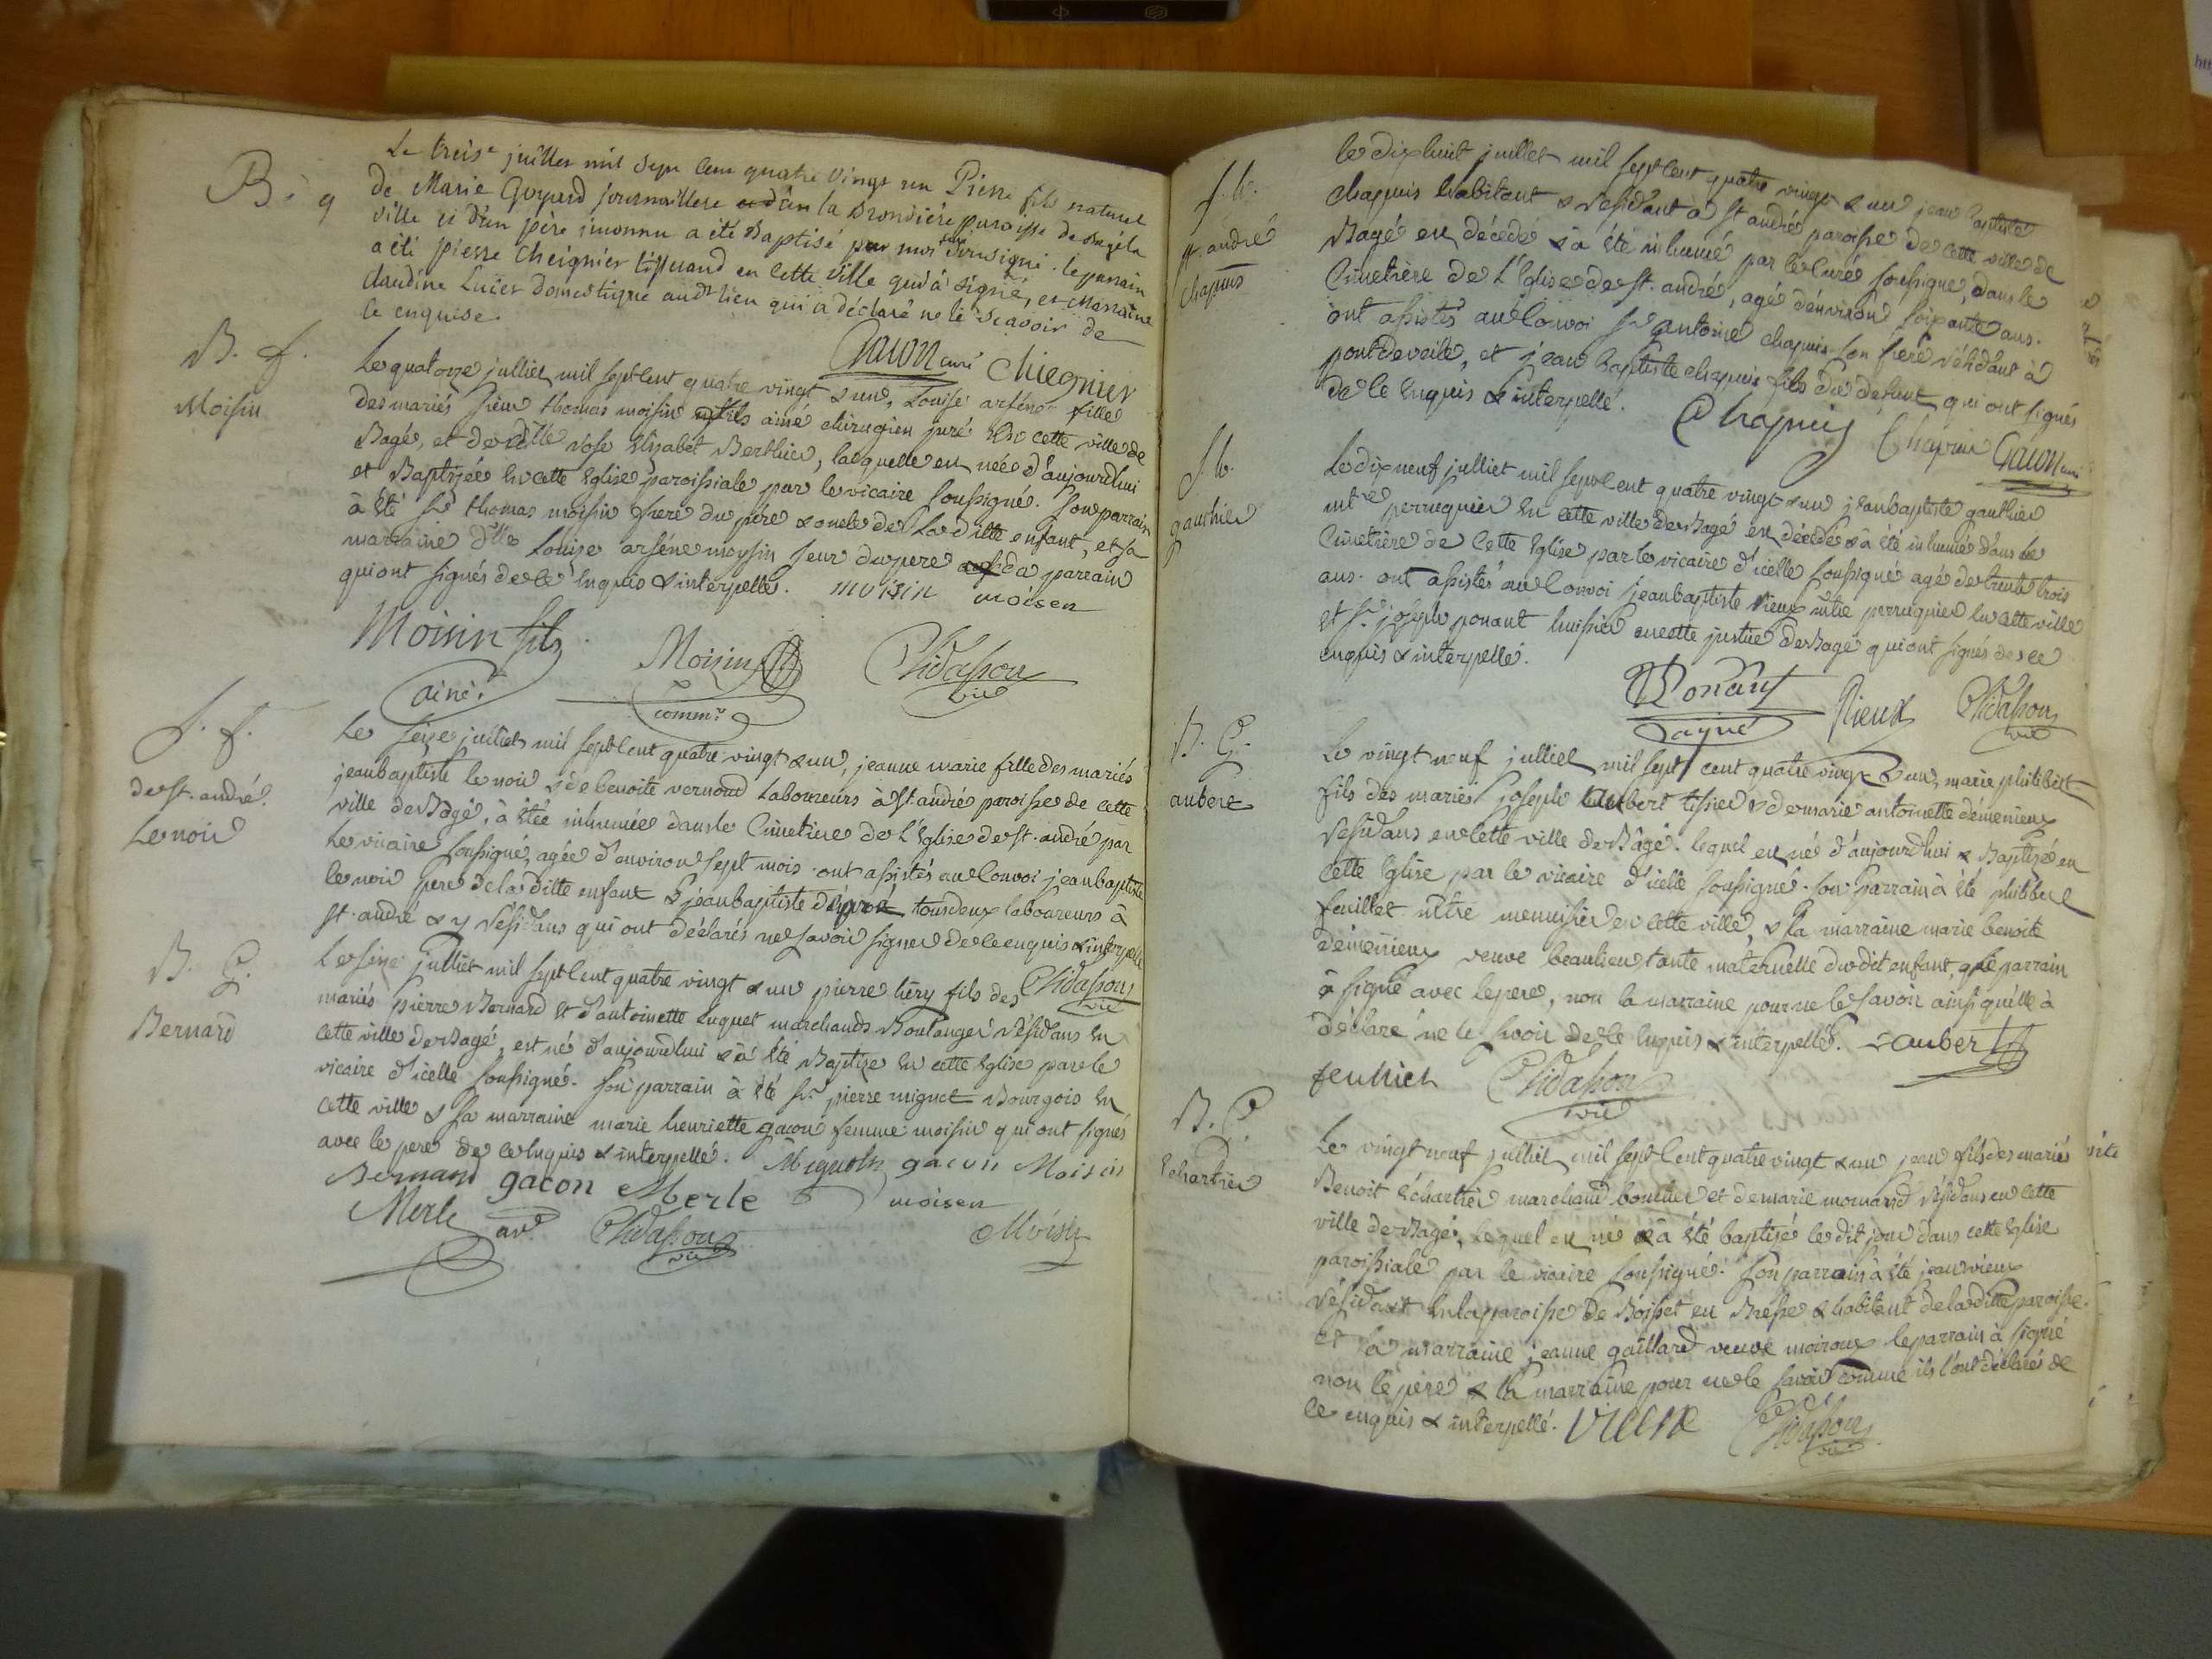 B. g
Le treise juillet mil sept cent quatre vingt un Pierre fils naturel
de Marie Goyard journaillere la Brondière paroisse de Bagé la
ville et d'un père inconnu a été Baptisé par moi soussigné. le parain
a été pierre Cheignier tisserand en cette Ville qui a signé, et Marraine
Claudine Luiset Domestique audt lieu qui a déclaré ne le sçavoir de
ce enquise.
Gacon curé Chiegnier
B. f.
Moisin
Le quatorze julliet mil sept cent quatre vingt & un, Louise arséne fille
des mariés sieur thomas moisin fils ainé chirurgien juré en cette ville de
Bagé, et de dlle Rose Elizabet Berthier, laquelle est née d'aujourdhui
et Baptizée en cette Eglise paroissiale par le vicaire soussigné. son parrain
à été sr thomas moisin frere du père & oncle de laditte enfant, et sa
marraine dlle Louise arséne moysin seur du pere parrain
qui ont signés de ce enquis & interpellé. moisin moisen
Moisin fils
ainé
Moisin
commre
Chidasson
vic
S. f.
de st. andré.
Lenoir
Le seize juilliet mil sept cent quatre vingt & un, jeanne marie fille des mariés
jean baptiste lenoir & de benoite vernoud Laboureurs à st andré paroisse de cette
ville de Bagé, à étée inhumée dans le Cimetiere de l'Eglise de st. andré par
le vicaire soussigné, agée d'environ sept mois. ont assistés au Convoi jean baptiste
lenoir pere de laditte enfant & jean baptiste dupré tous deux laboureurs à
st. andré & y résidans qui ont déclarés ne savoir signer de ce enquis & interpellé
Chidasson
vic
B. G.
Bernard
Le seize julliet mil sept cent quatre vingt & un pierre héry fils des
mariés pierre Bernard et d'antoinette enquet marchands Boulanger résidans en
cette ville de Bagé, est né d'aujourdhui & à été Baptize en cette Eglise par le
vicaire d'icelle soussigné. son parrain à été sr. pierre mignot Bourgois en
cette ville & sa marraine marie henriette gacon femme moisin qui ont signés
avec le pere de ce enquis & interpellé. Mignot gacon Moisin
Bernard gacon Merle moisen
Merle av. Chidasson
vic
Moisin
S. h.
st. andré
chapuis
le dixhuit juillet mil sept cent quatre vingt & un jean baptiste
chapuis habitant & résidant à st andré paroisse de cette ville de
Bagé est décédé & a été inhumé par le curé soussigné, dans le
Cimetière de l'Eglise de st. andré, agé d'environ soixante ans.
ont assistés au Convoi sr antoine chapuis son frere résidant à
pont de veile, et jean baptiste chapuis fils du defunt qui ont signés
de ce enquis & interpellé. Chapuis Chapuis Gacon curé
S. h.
gauthier
Le dix neuf julliet mil sept cent quatre vingt & un jean baptiste gauthier
mtre perruquier en cette ville de Bagé est décédé & à été inhumé dans le
Cimetière de cette Eglise par le vicaire d'icelle soussigné agé de trente trois
ans. ont assistés au Convoi jean baptiste Rieux mtre perruquier en cette ville
et sr. joseph ponant huissier en cette justice de Bagé qui ont signés de ce
enquis & interpellé.
Ponant
ayné
Rieux
Chidasson
vic
B. G.
aubert
Le vingt neuf julliet mil sept cent quatre vingt & un, marie philibert
fils des mariés joseph aubert tissier & de marie antoinette démenieux
résidans en cette ville de Bâgé. lequel est né d'aujourdhui & Baptizé en
cette Eglise par le vicaire d'icelle soussigné. son parrain à été philibert
feuillet mtre menuisier en cette ville, & la marraine marie benoite
démenieux veuve beaulieu tante maternelle du dit enfant, le parrain
à signé avec le pere, non la marraine pour ne le savoir ainsi qu'elle à
déclaré ne le savoir de ce enquis & interpellé. aubert
feulliet Chidasson
vic
B. G.
Echartier
Le vingt neuf julliet mil sept cent quatre vingt & un jean fils des mariés
Benoit échartier marchand boucher et de marie mornand résidans en cette
ville de Bagé, lequel est né & à été baptisé le dit jour dans cette Eglise
paroissiale par le vicaire soussigné. son parrain à été jean vieux
résidant en la paroisse de Boisset en Bresse & habitant de laditte paroisse.
et la marraine jeanne gaillard veuve moiroux le parrain à signé
non le père & la marraine pour ne le savoir comme ils l'ont déclarés de
ce enquis & interpellé. vieux Chidasson
vic